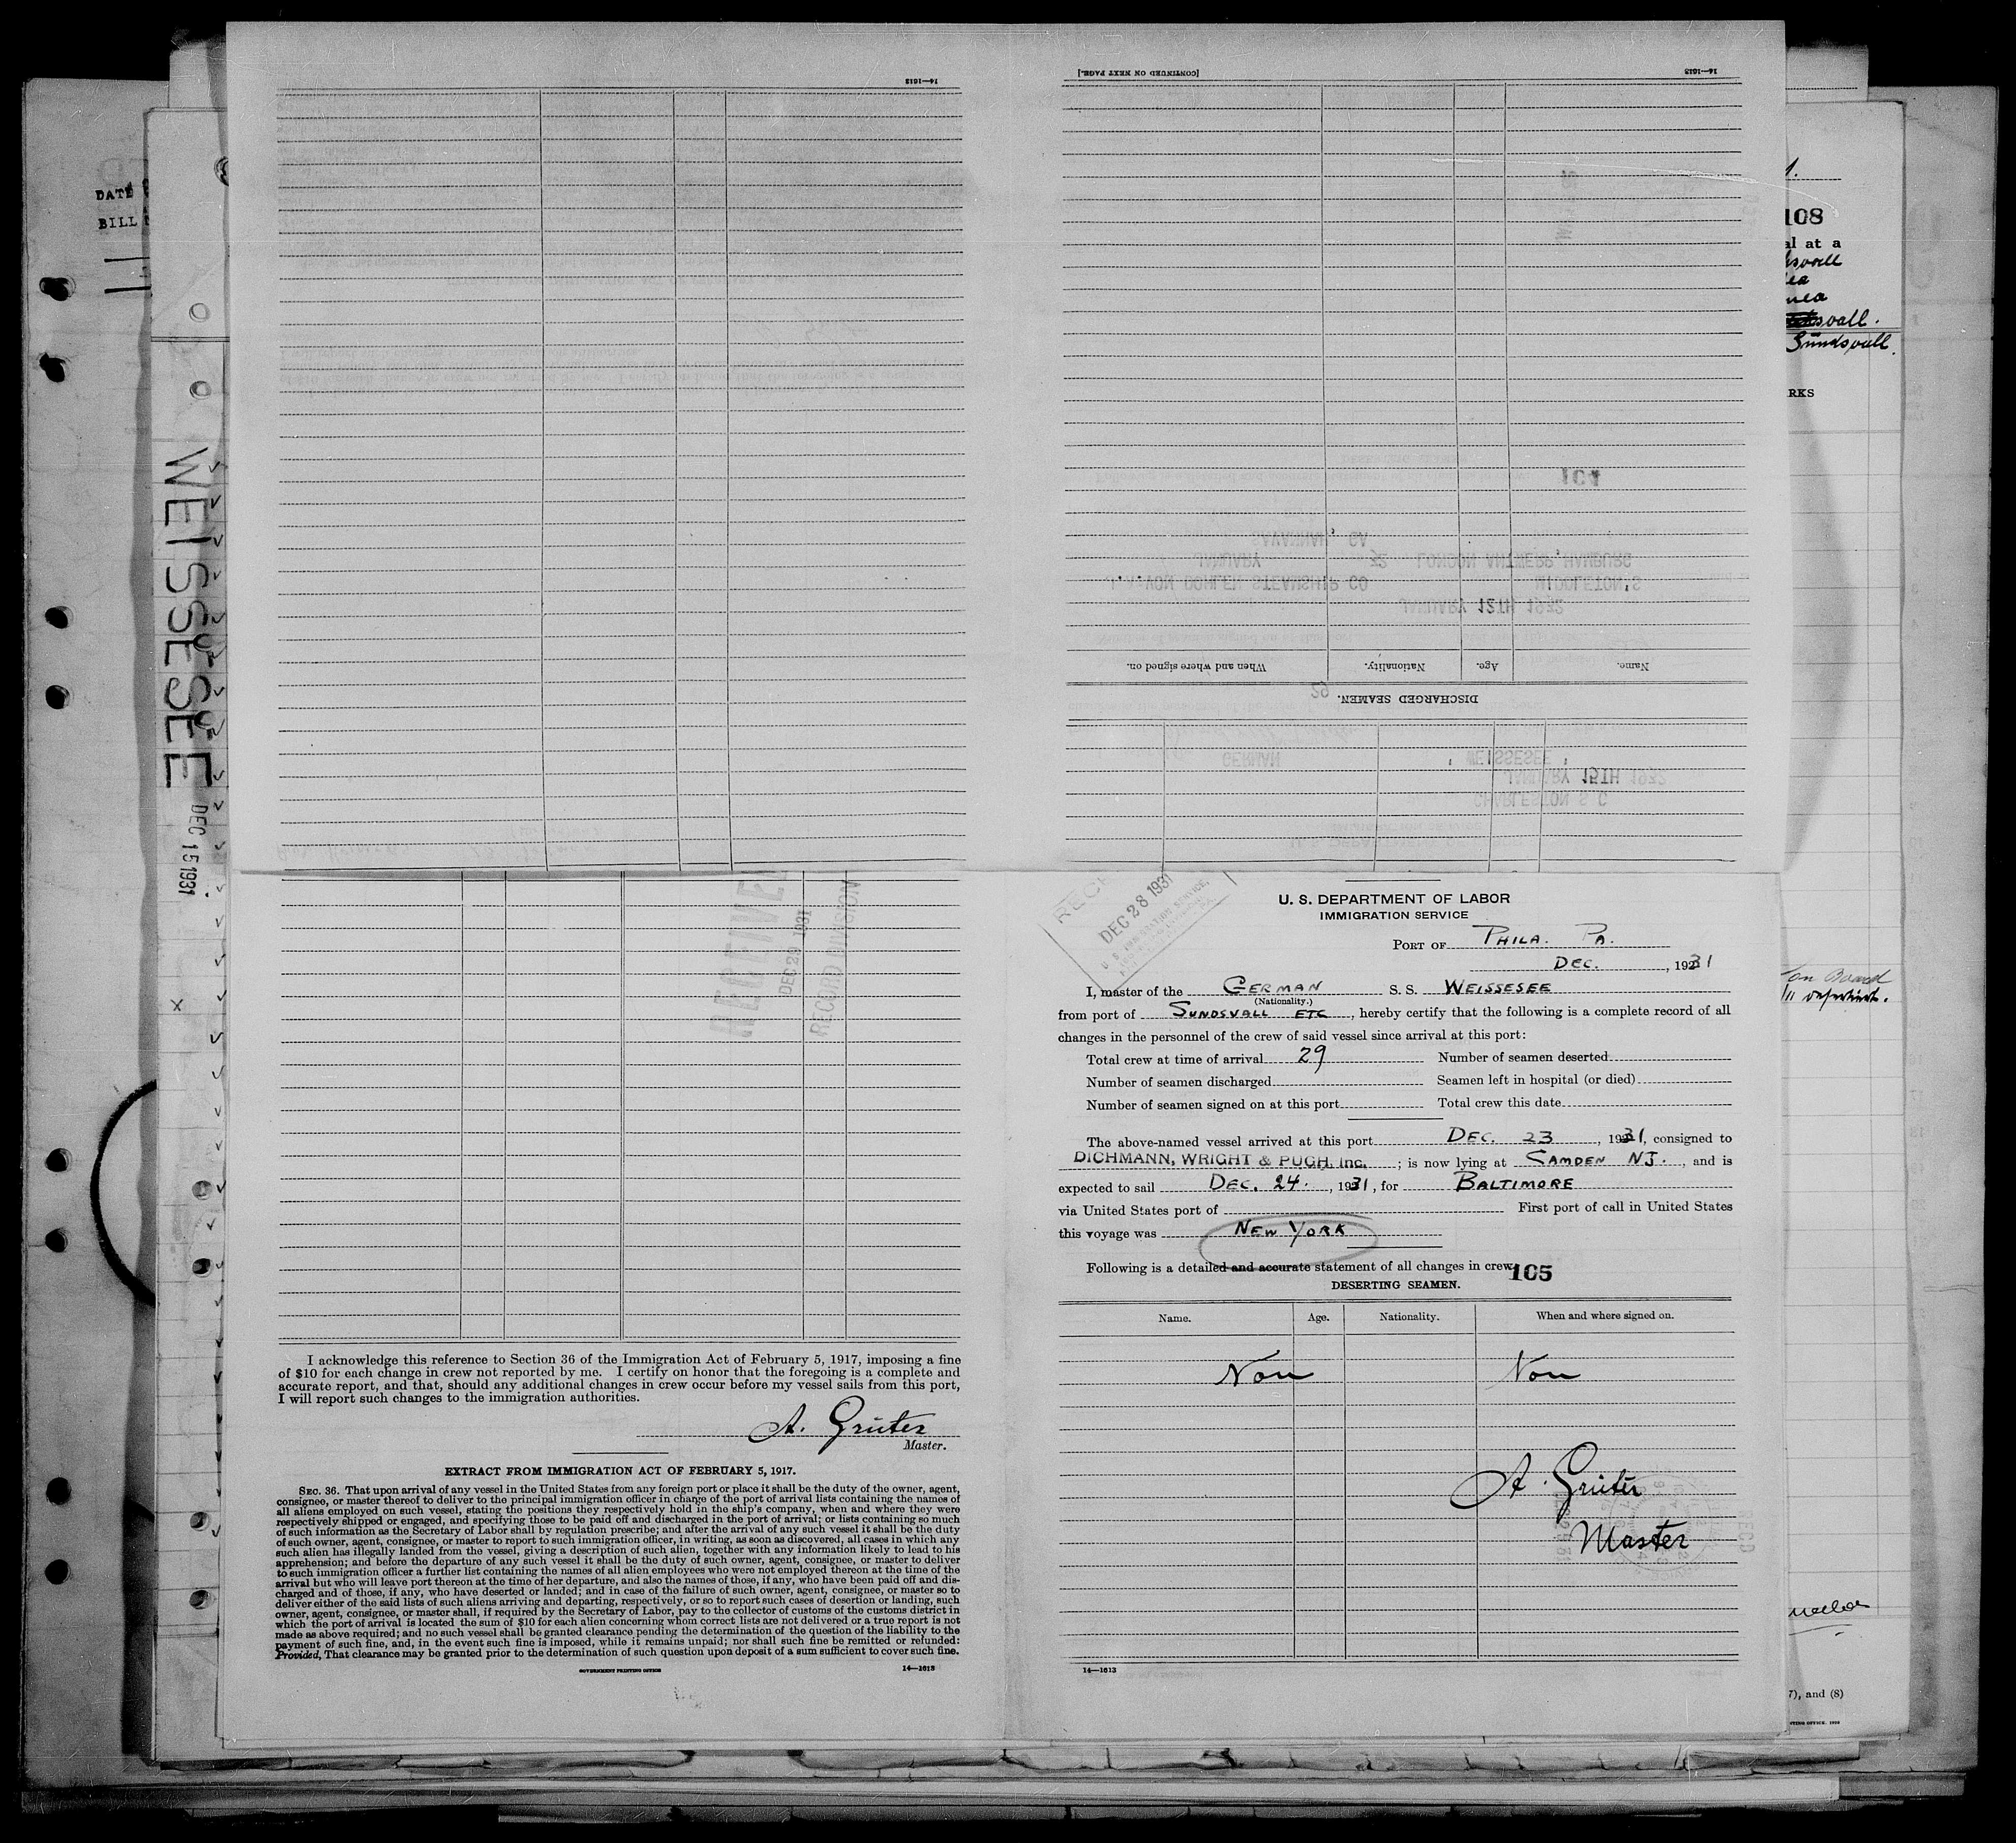 14—1613
[CONTINUED ON NEXT PAGE.]
14—1613
Name.
Age.
Nationality.
When and where signed on.
DISCHARGED SEAMEN.
29
104
SAVANNAH, GA
JANUARY
32
LONDON ANTWERP HAMBURG
VON DOHLEN STEAMSHIP CO
MIDDLETON'S
JANUARY 12TH 1932
GERMAN
WEISSESEE
JANUARY 15TH 1932
CHARLESTON S C
DATE
BILL
WEISSESEE
DEC 15 1931
108
al at a
svall.
Sundsvall.
RKS
on Board
7), and (8)
RECEIVED
DEC 29 1931
RECORD DIVISION
DEC 28 1931
U. S. DEPARTMENT OF LABOR
IMMIGRATION SERVICE
PORT OF PHILA. PA.
DEC. , 1931
I, master of the GERMAN S. S. WEISSESEE
(Nationality.)
from port of SUNDSVALL ETC , hereby certify that the following is a complete record of all
changes in the personnel of the crew of said vessel since arrival at this port:
Total crew at time of arrival 29 Number of seamen deserted
Number of seamen discharged Seamen left in hospital (or died)
Number of seamen signed on at this port Total crew this date
The above-named vessel arrived at this port DEC. 23 , 1931, consigned to
DICHMANN, WRIGHT & PUGH, Inc. ; is now lying at CAMDEN NJ. , and is
expected to sail DEC. 24. , 1931, for BALTIMORE
via United States port of First port of call in United States
this voyage was NEW YORK
Following is a detailed and accurate statement of all changes in crew:
105
DESERTING SEAMEN.
Name. Age. Nationality. When and where signed on.
Non Non
A. Grüter
Master
14—1613
I acknowledge this reference to Section 36 of the Immigration Act of February 5, 1917, imposing a fine
of $10 for each change in crew not reported by me. I certify on honor that the foregoing is a complete and
accurate report, and that, should any additional changes in crew occur before my vessel sails from this port,
I will report such changes to the immigration authorities.
A. Grüter
Master.
EXTRACT FROM IMMIGRATION ACT OF FEBRUARY 5, 1917.
SEC. 36. That upon arrival of any vessel in the United States from any foreign port or place it shall be the duty of the owner, agent,
consignee, or master thereof to deliver to the principal immigration officer in charge of the port of arrival lists containing the names of
all aliens employed on such vessel, stating the positions they respectively hold in the ship's company, when and where they were
respectively shipped or engaged, and specifying those to be paid off and discharged in the port of arrival; or lists containing so much
of such information as the Secretary of Labor shall by regulation prescribe; and after the arrival of any such vessel it shall be the duty
of such owner, agent, consignee, or master to report to such immigration officer, in writing, as soon as discovered, all cases in which any
such alien has illegally landed from the vessel, giving a description of such alien, together with any information likely to lead to his
apprehension; and before the departure of any such vessel it shall be the duty of such owner, agent, consignee, or master to deliver
to such immigration officer a further list containing the names of all alien employees who were not employed thereon at the time of the
arrival but who will leave port thereon at the time of her departure, and also the names of those, if any, who have been paid off and dis-
charged and of those, if any, who have deserted or landed; and in case of the failure of such owner, agent, consignee, or master so to
deliver either of the said lists of such aliens arriving and departing, respectively, or so to report such cases of desertion or landing, such
owner, agent, consignee, or master shall, if required by the Secretary of Labor, pay to the collector of customs of the customs district in
which the port of arrival is located the sum of $10 for each alien concerning whom correct lists are not delivered or a true report is not
made as above required; and no such vessel shall be granted clearance pending the determination of the question of the liability to the
payment of such fine, and, in the event such fine is imposed, while it remains unpaid; nor shall such fine be remitted or refunded:
Provided, That clearance may be granted prior to the determination of such question upon deposit of a sum sufficient to cover such fine.
GOVERNMENT PRINTING OFFICE
14—1613